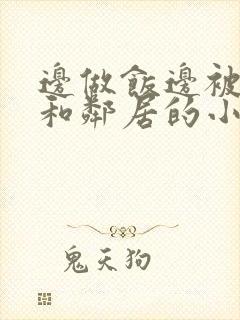 邊做飯邊被
和鄰居的小
鬼天狗